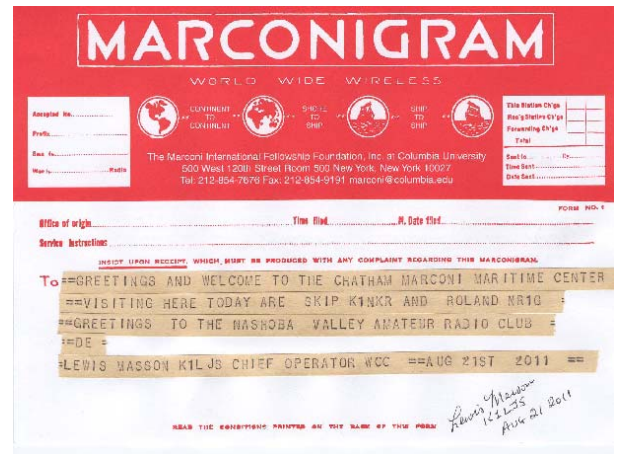 MARCONIGRAM
WORLD WIDE WIRELESS
CONTINENT TO CONTINENT
SHORE TO SHIP
SHIP TO SHIP
Accepted No.
Prefix
Words Radio
This Station Ch'ge
Forwarding Ch'ge
Total
Sent to By
Time Sent
Date Sent
The Marconi International Fellowship Foundation, Inc. at Columbia University
500 West 120th Street Room 500 New York, New York 10027
Tel: 212-854-7676 Fax: 212-854-9191 marconi@columbia.edu
FORM NO. 1
Office of origin Time filed M. Date filed
Service Instructions
INSIST UPON RECEIPT, WHICH MUST BE PRODUCED WITH ANY COMPLAINT REGARDING THIS MARCONIGRAM.
To ==GREETINGS AND WELCOME TO THE CHATHAM MARCONI MARITIME CENTER
==VISITING HERE TODAY ARE SKIP K1NKR AND ROLAND NR1G =
==GREETINGS TO THE NASHOBA VALLEY AMATEUR RADIO CLUB =
=DE =
=LEWIS MASSON K1LJS CHIEF OPERATOR WCC ==AUG 21ST 2011 ==
Lewis Masson
K1LJS
AUG 21 2011
READ THE CONDITIONS PRINTED ON THE BACK OF THIS FORM